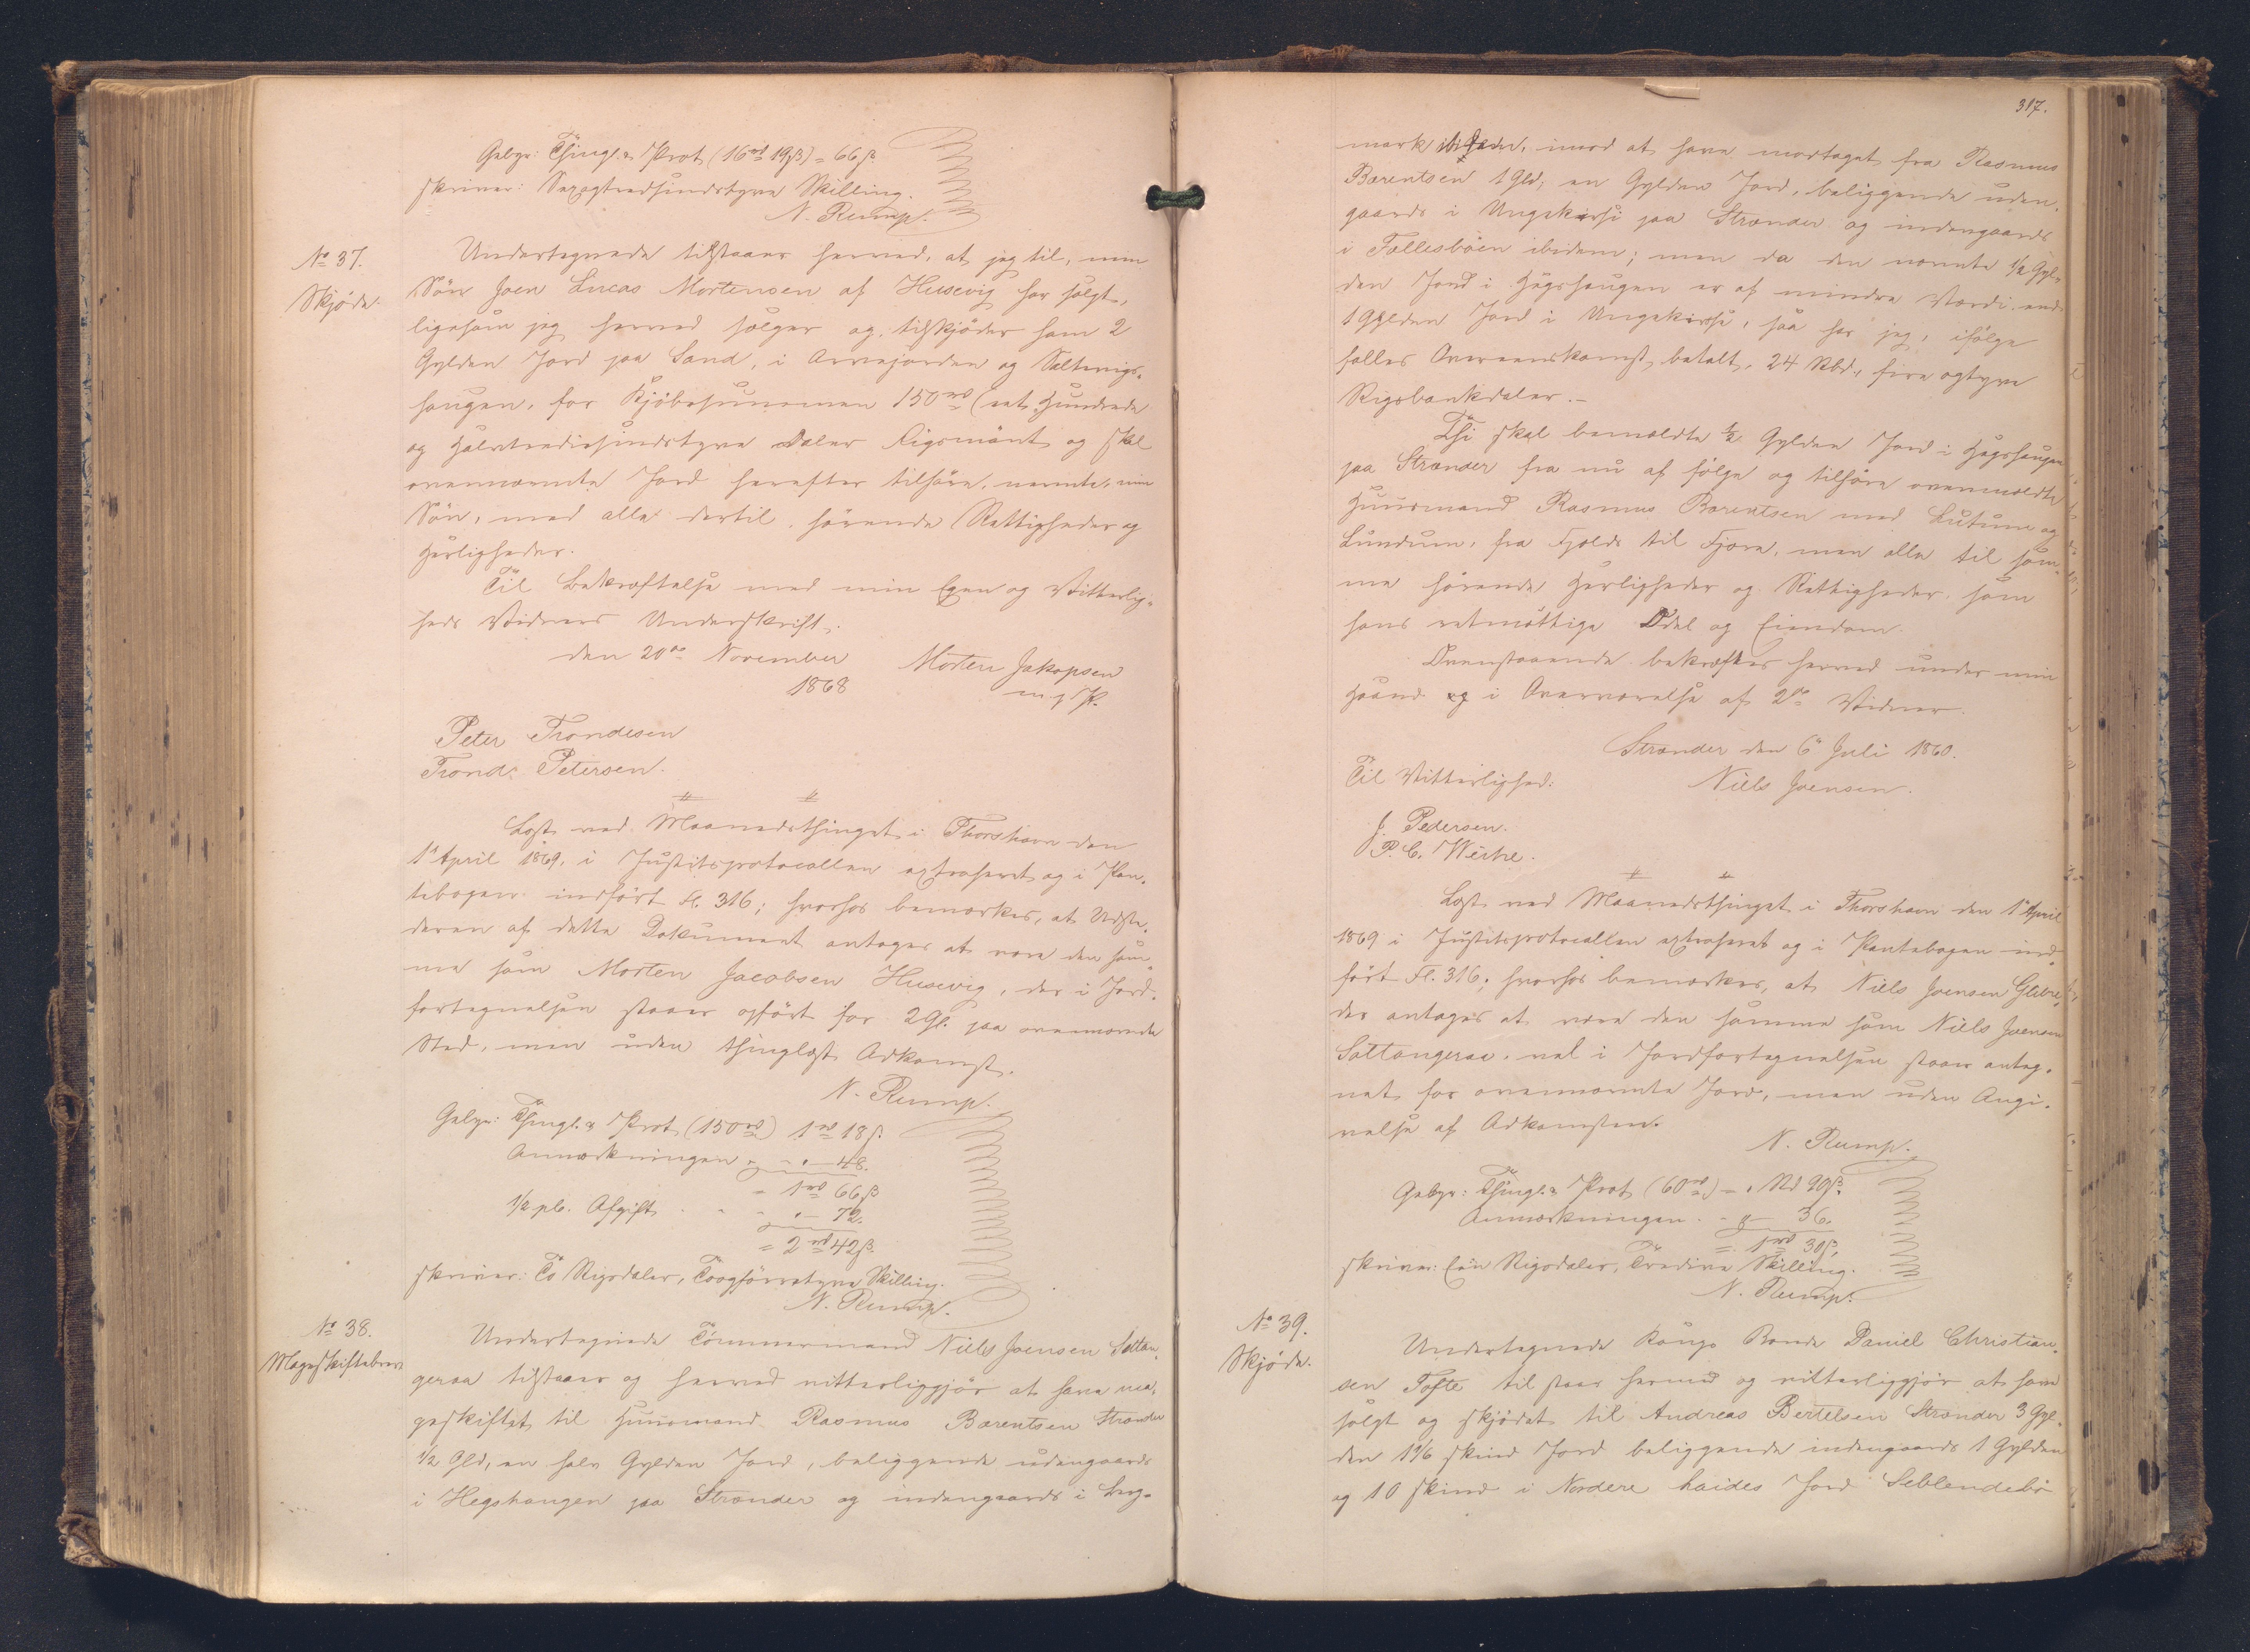 Gebyr: Thingl. & Prot (16 rd 19 β) = 66 β.
skriver: Sexogtredsindstyve Skilling.
N. Rump.
No 37.
Skjøde.
Undertegnede tilstaaer herved, at jeg til, min
Søn Joen Lucas Mortensen af Husevig har solgt,
ligesom jeg herved sælger og tilskjøder ham 2
Gylden Jord paa Sand, i Arvejorden og Saltvigs-
haugen, for Kjøbesummen 150 rd (et Hundrede
og Halvtredsindstyve Daler Rigsmønt og skal
ovennævnte Jord herefter tilhøre, nævnte, min
Søn, med alle dertil, hørende Rettigheder og
Herligheder.
Til Bekræftelse med min Egen og Vitterlig-
heds Vidners Underskrift.
den 20de November
1868
Morten Jakopsen
m. f. P.
Peter Trondesen
Trond Petersen.
Læst ved Maanedsthinget i Thorshavn den
1ste April 1869, i Justitsprotocollen extraheret og i Pan-
tebogen indført Fl. 316; hvorhos bemærkes, at Udste-
deren af dette Dokument antages at være den sam-
me som Morten Jacobsen Husevig, der i Jord-
fortegnelsen staaer opført for 2 Gl. paa ovennævnte
Sted, men uden thinglæst Adkomst.
N. Rump.
Gebyr: Thingl. & Prot (150 rd) 1 rd 18 β.
Anmærkningen " - 48.
- 1 rd 66 β
1/2 pC. Afgift " - 72.
= 2 rd 42 β.
skriver: To Rigsdaler, Toogfyrretyve Skilling.
N. Rump.
No 38.
Mageskiftebrev
Undertegnede Tømmermand Niels Joensen Saltan-
geraa tilstaaer og herved vitterliggjør at have ma-
geskiftet til Huusmand Rasmus Barentsen Strænder
1/2 Gld, en halv Gylden Jord, beliggende udengaards
i Hegshaugen paa Strænder og indengaards i
317.
mark ibidem, imod at have modtaget fra Rasmus
Barentsen 1 Gld, en Gylden Jord, beliggende uden-
gaards i Ungekirse paa Strænder og indengaards
i Fællesbøen ibidem; men da den nævnte 1/2 Gyl-
den Jord i Høgshaugen er af mindre Værdi end
1 Gylden Jord i Ungekirse, saa har jeg, ifølge
fælles Overeenskomst, betalt, 24 Rbd., fire ogtyve
Rigsbankdaler.-
Thi skal bemældte 1/2 Gylden Jord i Høgshaugen
paa Strænder fra nu af følge og tilhøre ovenmældte
Huusmand Rasmus Barentsen med Lutum og
Lundum, fra Fjelde til Fjære, men alle til sam-
me hørende Herligheder og Rettigheder som
hans retmættige Odel og Eiendom.
Ovenstaaende bekræftes herved under min
Haand og i Overværelse af 2de Vidner.
Strænder den 6te Juli 1860.
Til Vitterlighed:
Niels Joensen.
J. Pedersen.
P. C. Weihe.
Læst ved Maanedsthinget i Thorshavn den 1ste April
1869 i Justitsprotocollen extraheret og i Pantebogen ind-
ført Fl. 316; hvorhos bemærkes, at Niels Joensen
der antages at være den samme som Niels Joensen
Saltangeraa, vel i Jordfortegnelsen staaer anteg-
net for ovennævnte Jord, men uden Angi-
velse af Adkomsten.
N. Rump.
Gebyr: Thingl. & Prot (60 rd) - " Rd 90 β.
Anmærkningen - " - 36.
= 1 rd 30 β.
skriver: Een Rigsdaler, Tredive Skilling.
N. Rump.
No 39.
Skjøde.
Undertegnede Kongs Bonde Daniel Christian-
sen Tofte til staar hermed og vitterliggjør at have
solgt og skjødet til Andreas Bertelsen Strænder 3 Gyl-
den 1 1/6 skind Jord beliggende indengaards 1 Gylden
og 10 skind i Nordere haides Jord Seblendebø